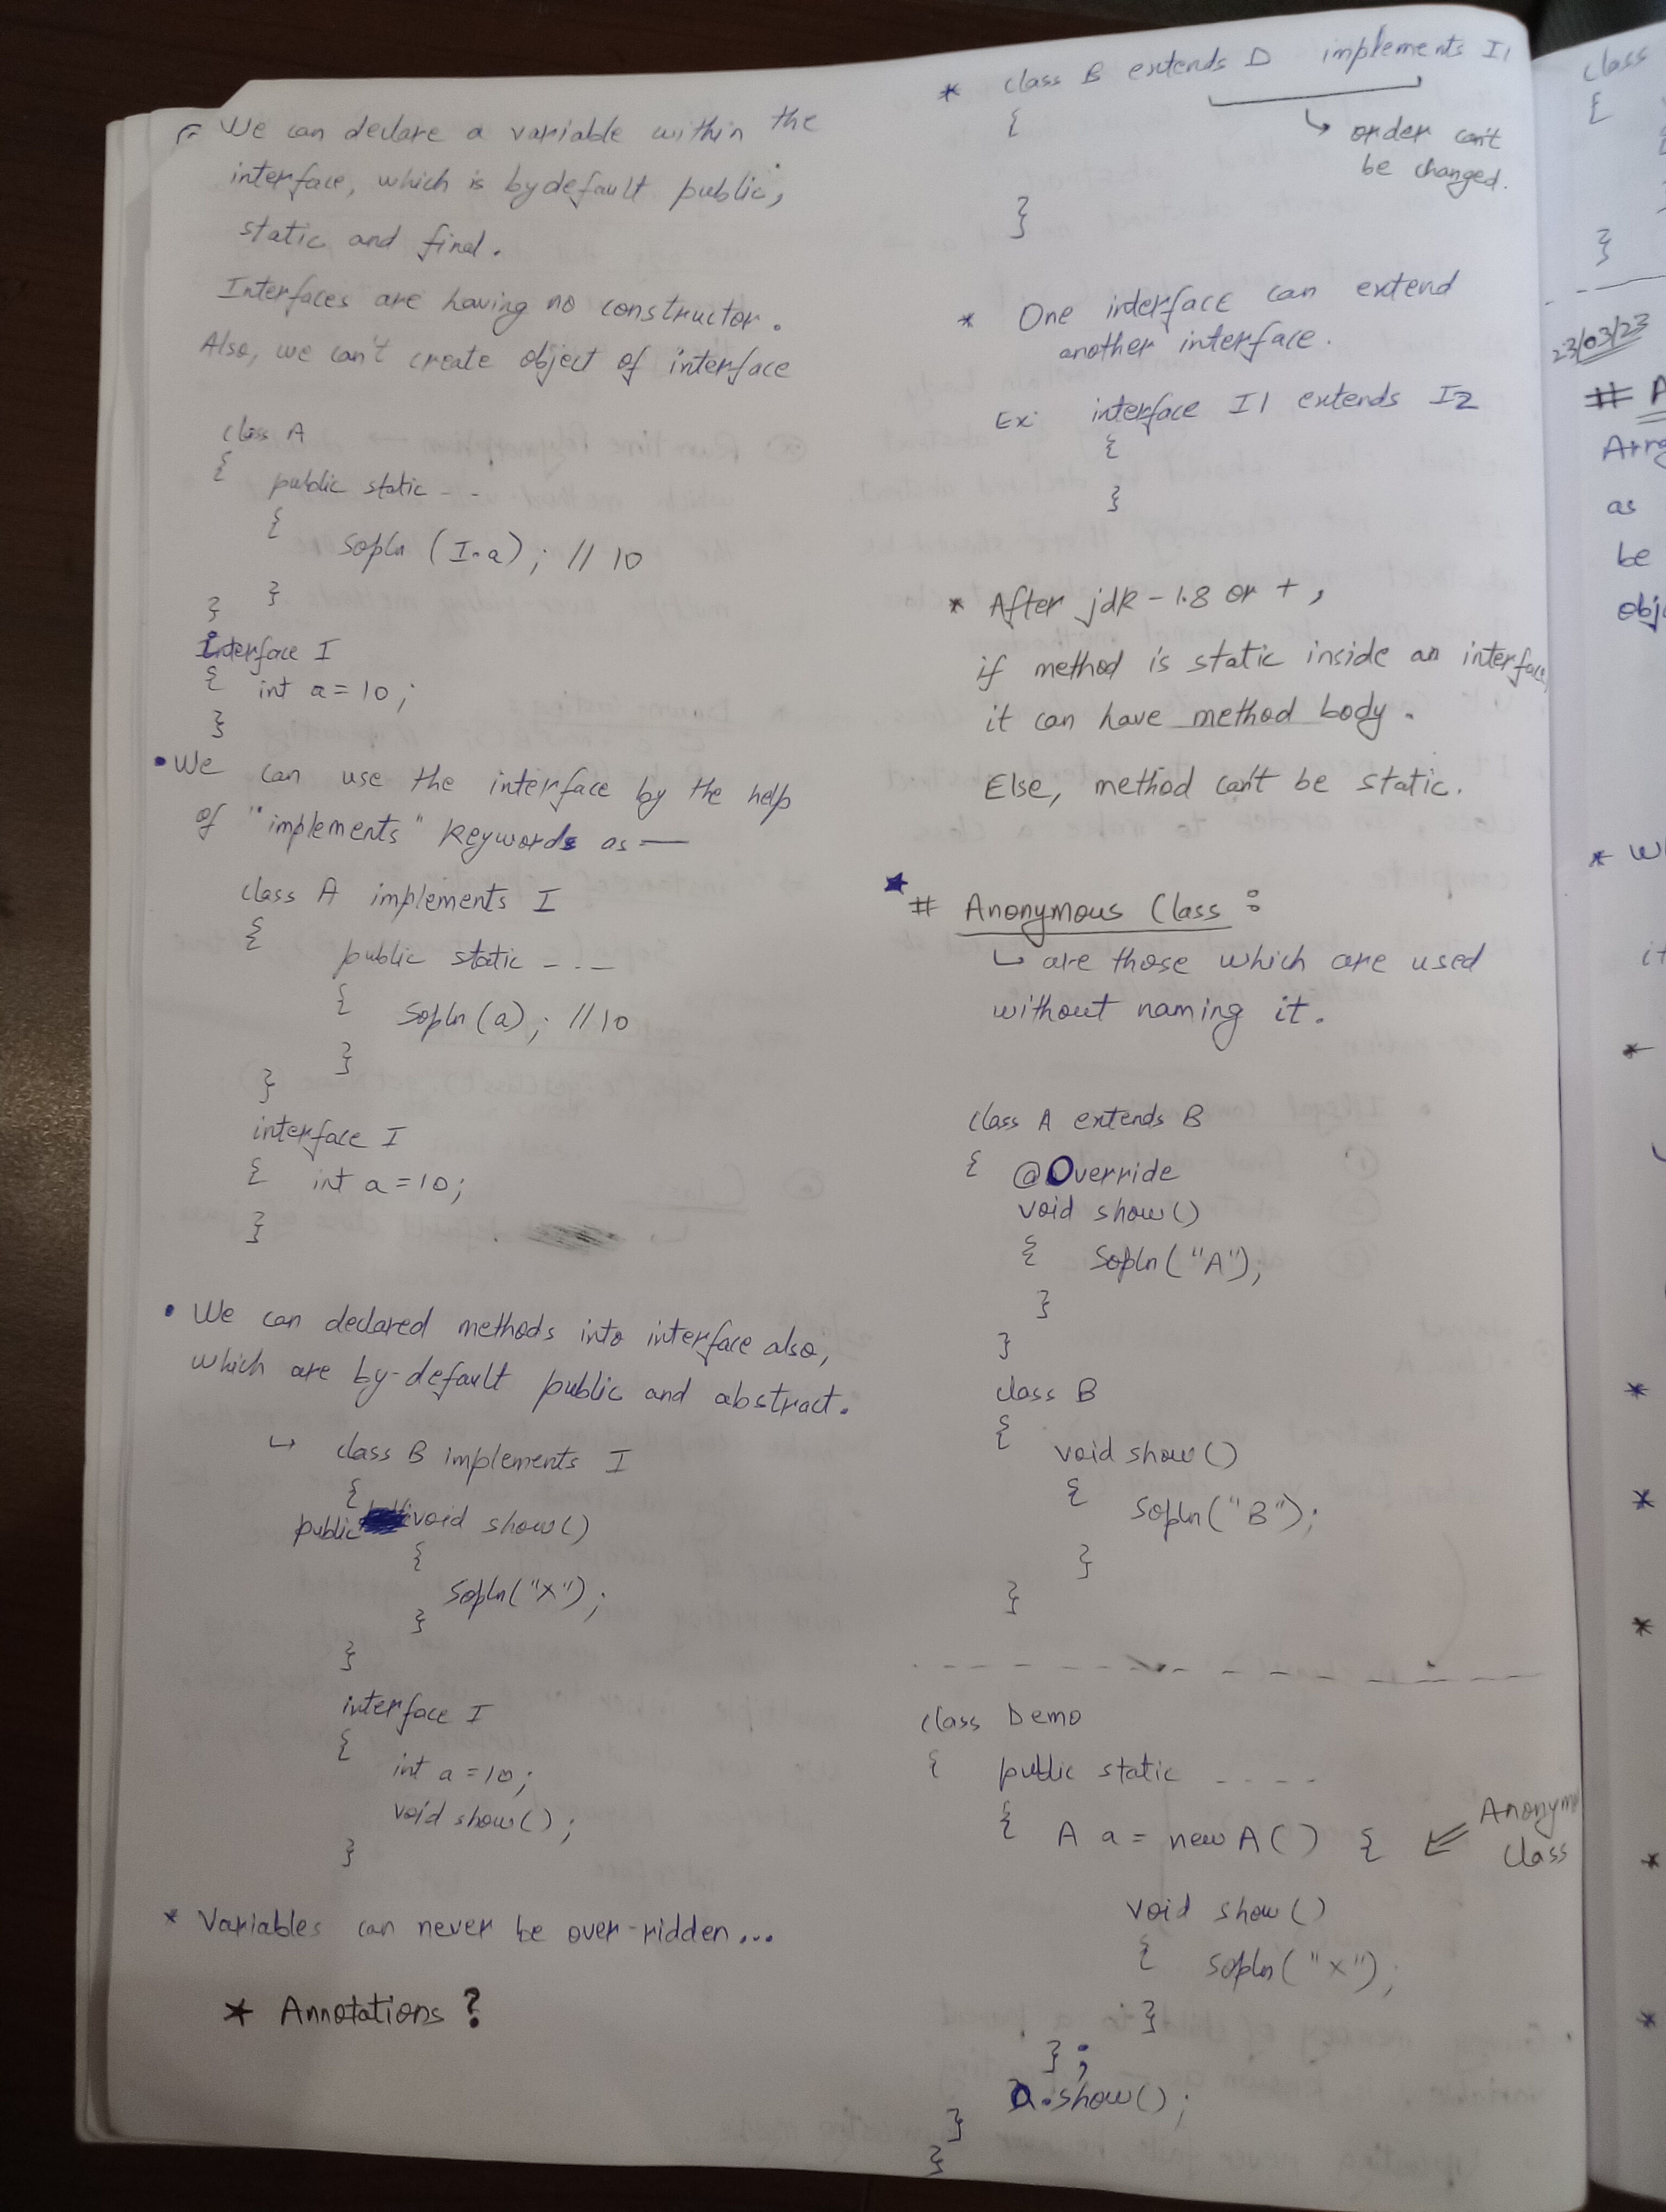 We can declare a variable within the
interface, which is bydefault public,
static and final.
Interfaces are having no constructor.
Also, we can't create object of interface
class A
{
public static - -
{
Sopln (I.a); // 10
}
}
interface I
{ int a = 10;
}
• We can use the interface by the help
of "implements" keywords as —
class A implements I
{
public static - - -
{
Sopln(a); // 10
}
}
interface I
{ int a = 10;
}
• We can declared methods into interface also,
which are by-default public and abstract.
↳ class B implements I
{
public void show()
{
Sopln("X");
}
}
interface I
{
int a = 10;
void show();
}
* Variables can never be over-ridden...
* Annotations ?
* class B extends D implements I1
{
↳ order can't
be changed.
}
* One interface can extend
another interface.
Ex: interface I1 extends I2
{
}
* After jdk - 1.8 or +,
if method is static inside an interface,
it can have method body.
Else, method can't be static.
* # Anonymous Class :
↳ are those which are used
without naming it.
class A extends B
{ @Override
void show()
{ Sopln("A");
}
}
class B
{
void show()
{
Sopln("B");
}
}
class Demo
{ public static - - - -
{ A a = new A() { ⇐ Anonym
class
void show()
{ Sopln("X");
}
};
a.show();
}
}
class
{
}
23/03/23
# A
Arra
as
be
obje
* W
it
*
*
*
*
*
*